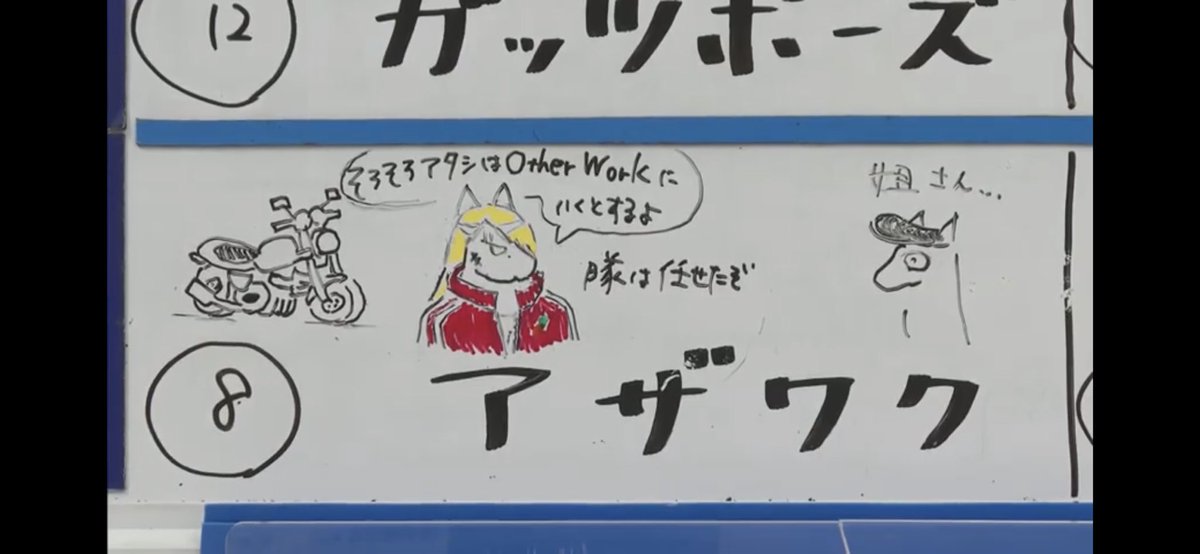 12
ガッツポーズ
そろそろアタシはOther Workに
いくとするよ
隊は任せたぞ
姐さん...
8
アザワク